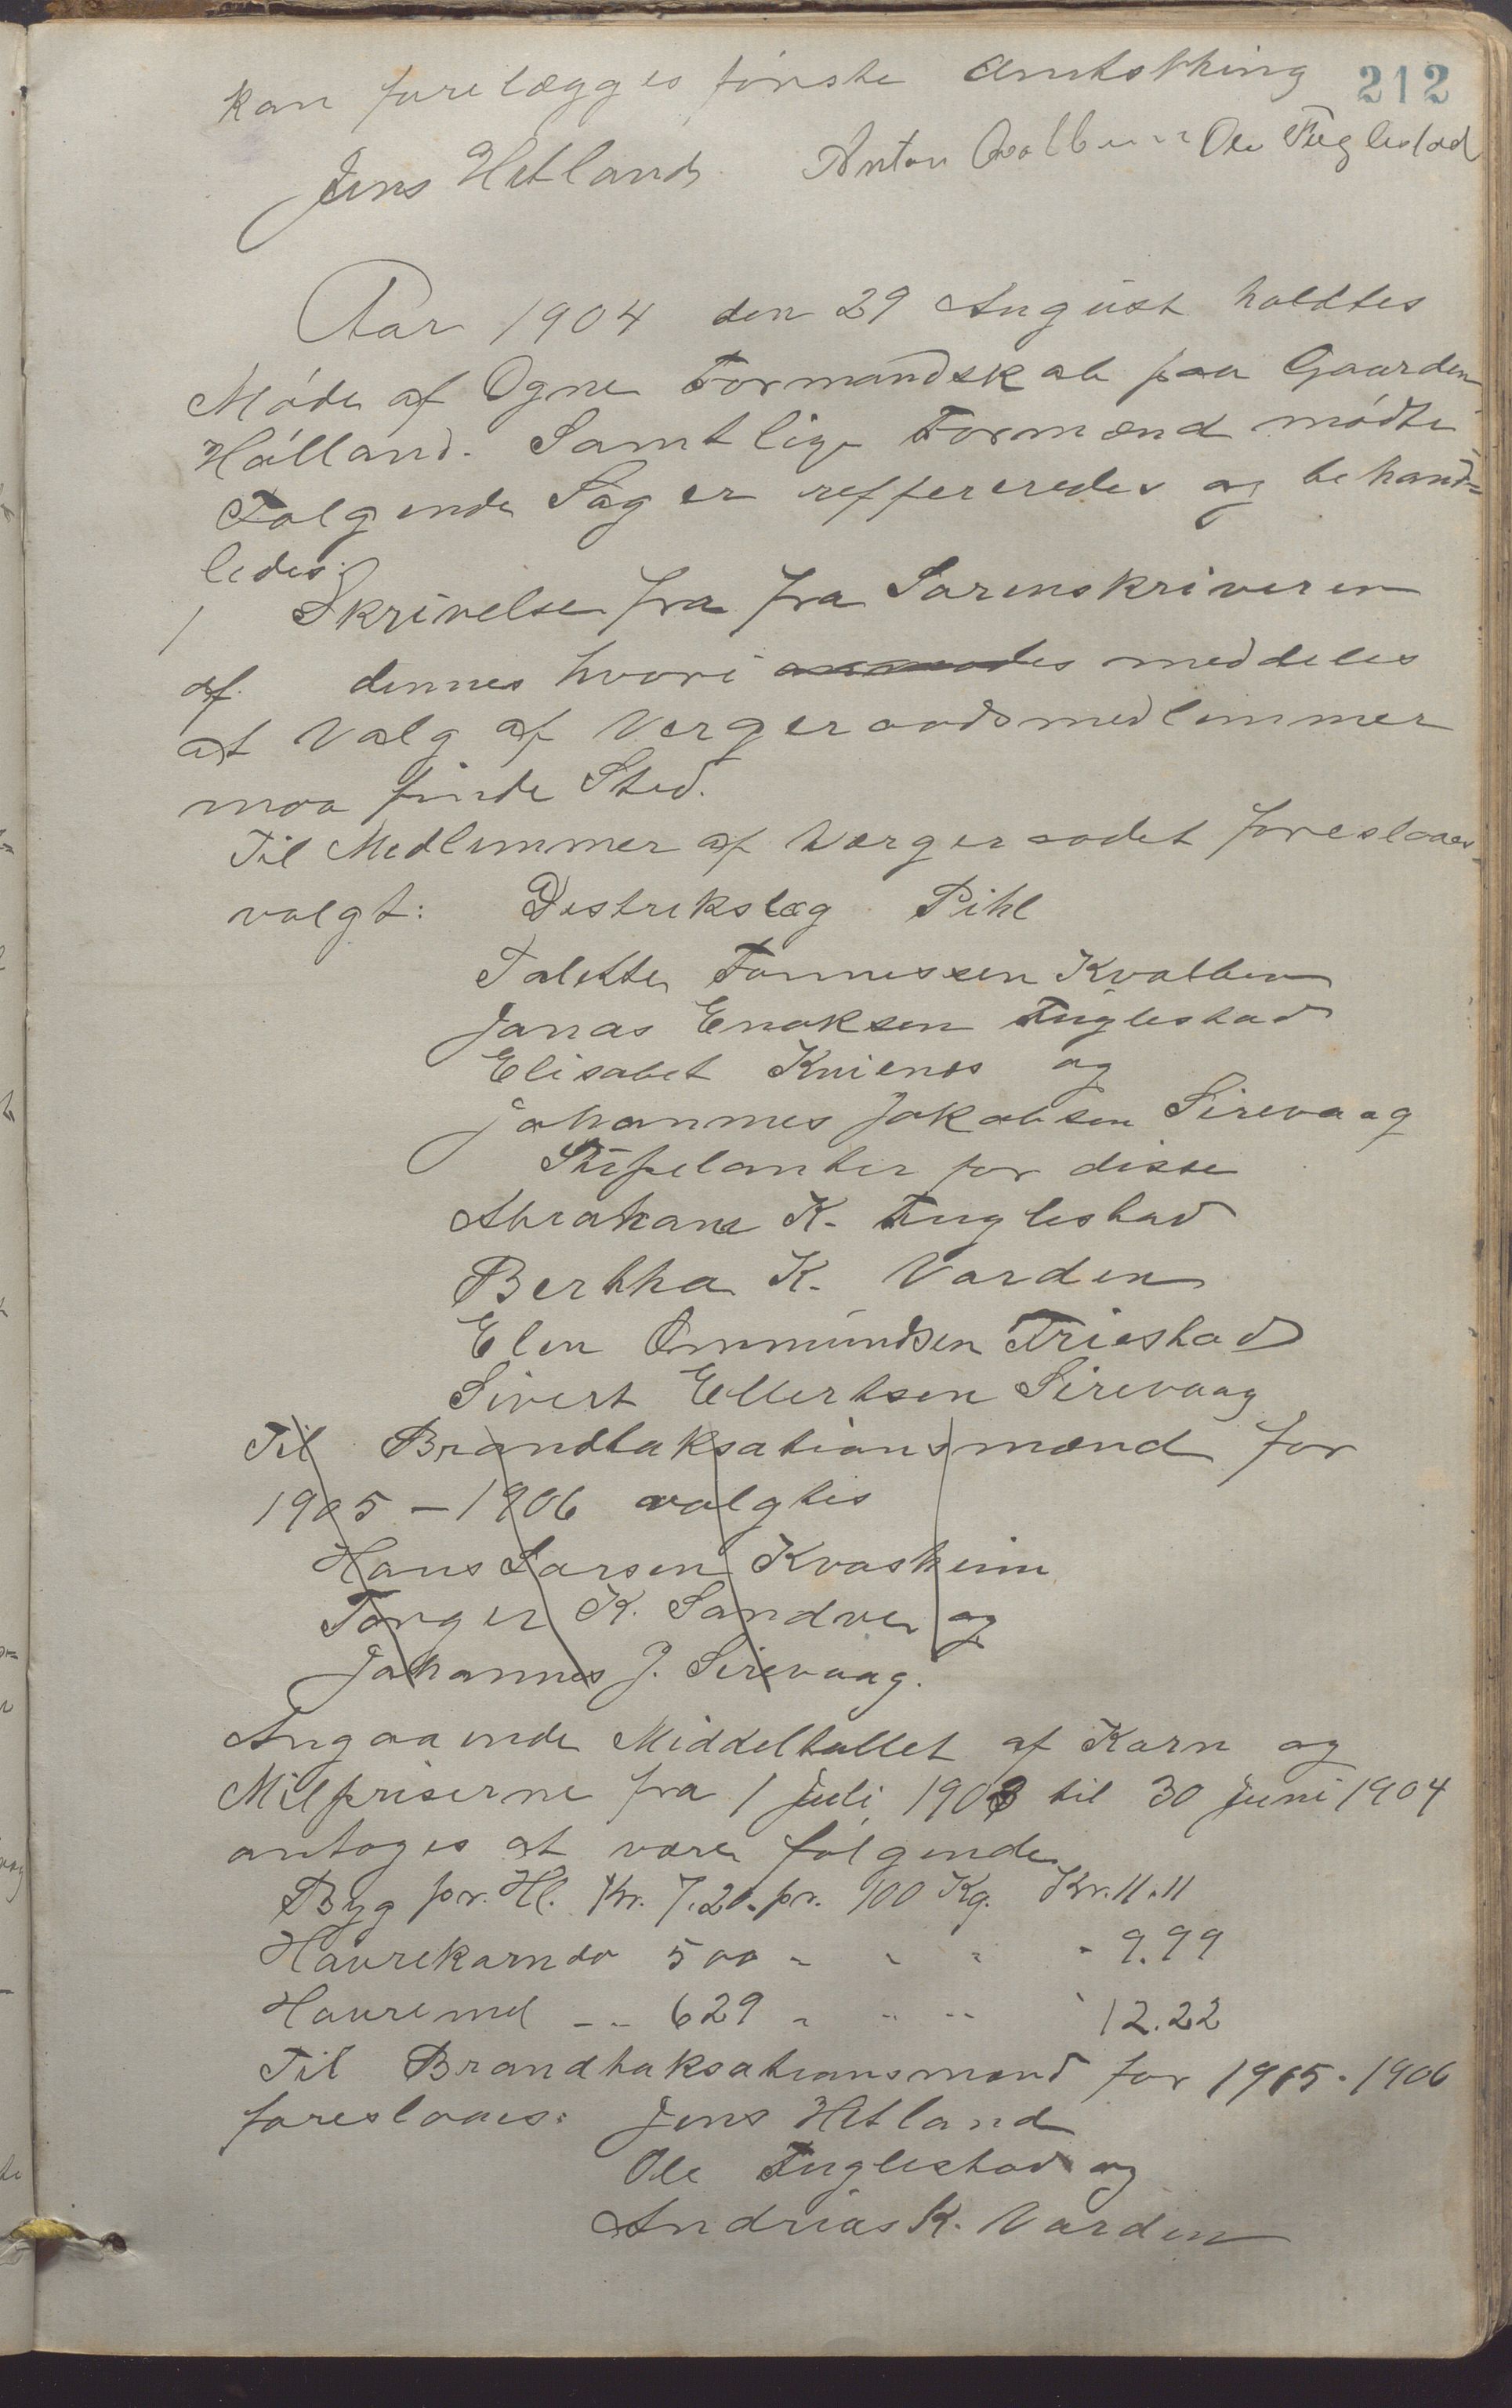 212
kan forelægges første Amtsthing
Jens Hetland Anton Ole Fuglestad
Aar 1904 den 29 August holdtes
Møde af Ogne Formandskab paa Gaarden
Hålland. Samtlige Formænd mødte
Følgende Sager reffereredes og behand=
ledes:
1 Skrivelse fra fra Sorenskriveren
af dennes hvori anmodes meddeles
at Valg af Vergeraadsmedlemmer
maa finde Sted.
Til Medlemmer af Vergeraadet foreslaaes
valgt: Destrikslæg Pihl
Talette Tønnessen Kvalbein
Jonas Enoksen Fuglestad
Elisabet og
Johannes Jakobsen Sirevaag
Supelanter for disse
Abraham K. Fuglestad
Bertha K. Varden
Elen Ommundsen Friestad
Sivert Ellertsen Sirevaag
Til Brandtaksationsmænd for
1905 – 1906 valgtes
Hans Larsen Kvasheim
Torger K. Sandve og
Johannes J. Sirevaag.
Angaaende Middeltallet af Korn og
Milpriserne fra 1 Juli 1903 til 30 Juni 1904
antoges at være følgende
Byg pr. Hl. Kr. 7.20. pr. 100 Kg. Kr. 11.11
Havrekorn do 500 " " " " 9.99
Havremel - - 629 " " " " 12.22
Til Brandtaksationsmænd for 1905 - 1906
foreslaaes: Jens Hetland
Ole Fuglestad og
Andrias K. Varden